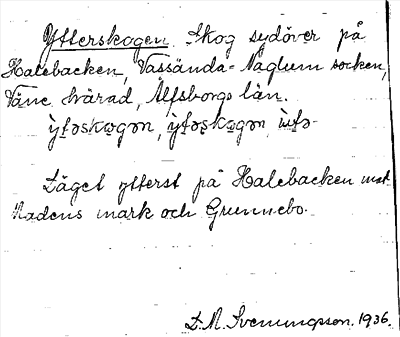 Ytterskogen. Skog sydöver på
Halebacken, Vassända-Naglum socken,
Väne härad, Älfsborgs län.
Läget ytterst på Halebacken mot
Nadens mark och Grunnebo.
D. M. Svenungsson. 1936.